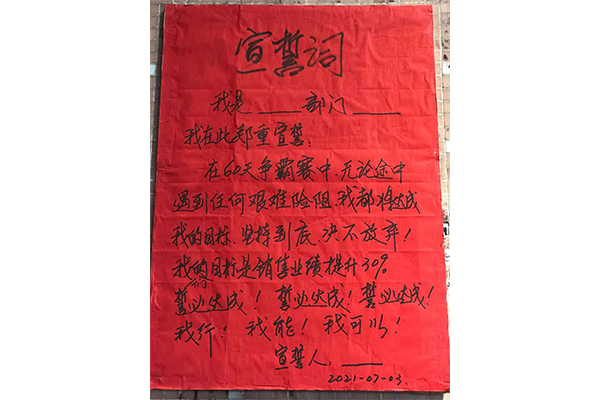 宣誓词
我是____部门____
我在此郑重宣誓:
在60天争霸赛中,无论途中
遇到任何艰难险阻,我都将达成
我的目标、坚持到底,决不放弃!
我们的目标是销售业绩提升30%
誓必达成!誓必达成!誓必达成!
我行!我能!我可以!
宣誓人:____
2021-07-03.